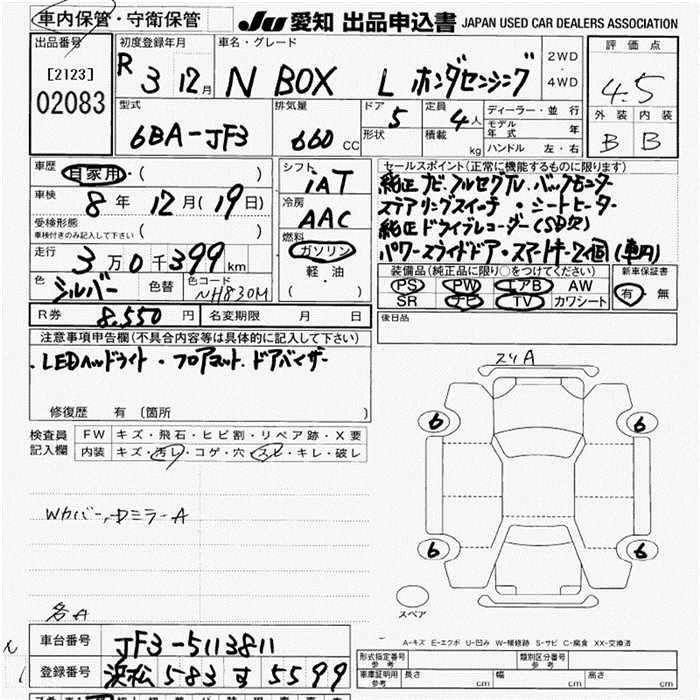 車内保管・守衛保管
JU 愛知 出品申込書 JAPAN USED CAR DEALERS ASSOCIATION
出品番号
[2123]
02083
初度登録年月
R 3 12月
車名・グレード
N BOX L ホンダセンシング
2WD
・
4WD
評価点
4.5
外装 内装
B B
型式
6BA-JF3
排気量
660 CC
ドア 5
形状
定員 4人
積載 kg
ディーラー・並行
モデル年式 年
ハンドル 左・右
車歴 自家用・( )
車検 8年 12月(19日)
受検形態
車検付きのみ記入して下さい ( )
走行 3万0千399km
色 シルバー 色替 色コード NH830M
シフト
iAT
冷房
AAC
燃料
ガソリン
軽・油
( )
セールスポイント(正常に機能するものに限ります)
純正ナビ.フルセグTV.バックモニター
ステアリングスイッチ・シートヒーター
純正ドライブレコーダー(SD欠)
パワースライドドア・スマートキー2個(車内)
装備品(純正品に限り○をつけてください)
PS PW エアB AW
SR ナビ TV カワシート
新車保証書
有・無
R券 8,550円 名変期限 月 日
後日品
注意事項申告欄(不具合内容等は具体的に記入して下さい)
・LEDヘッドライト・フロアマット.ドアバイザー
修復歴 有 (箇所 )
検査員記入欄
FW キズ・飛石・ヒビ割・リペア跡・X要
内装 キズ・汚レ・コゲ・穴・スレ・キレ・破レ
スリA
6 6
6 6
スペア
Wカバー,ドミラーA
各A
A-キズ E-エクボ U-凹み W-補修跡 S-サビ C-腐食 XX-交換済
車台番号 JF3-5113811
登録番号 浜松 583 す 5599
形式指定番号 参考
類別区分番号 参考
車庫証明用 参考 長さ cm 幅 cm 高さ cm